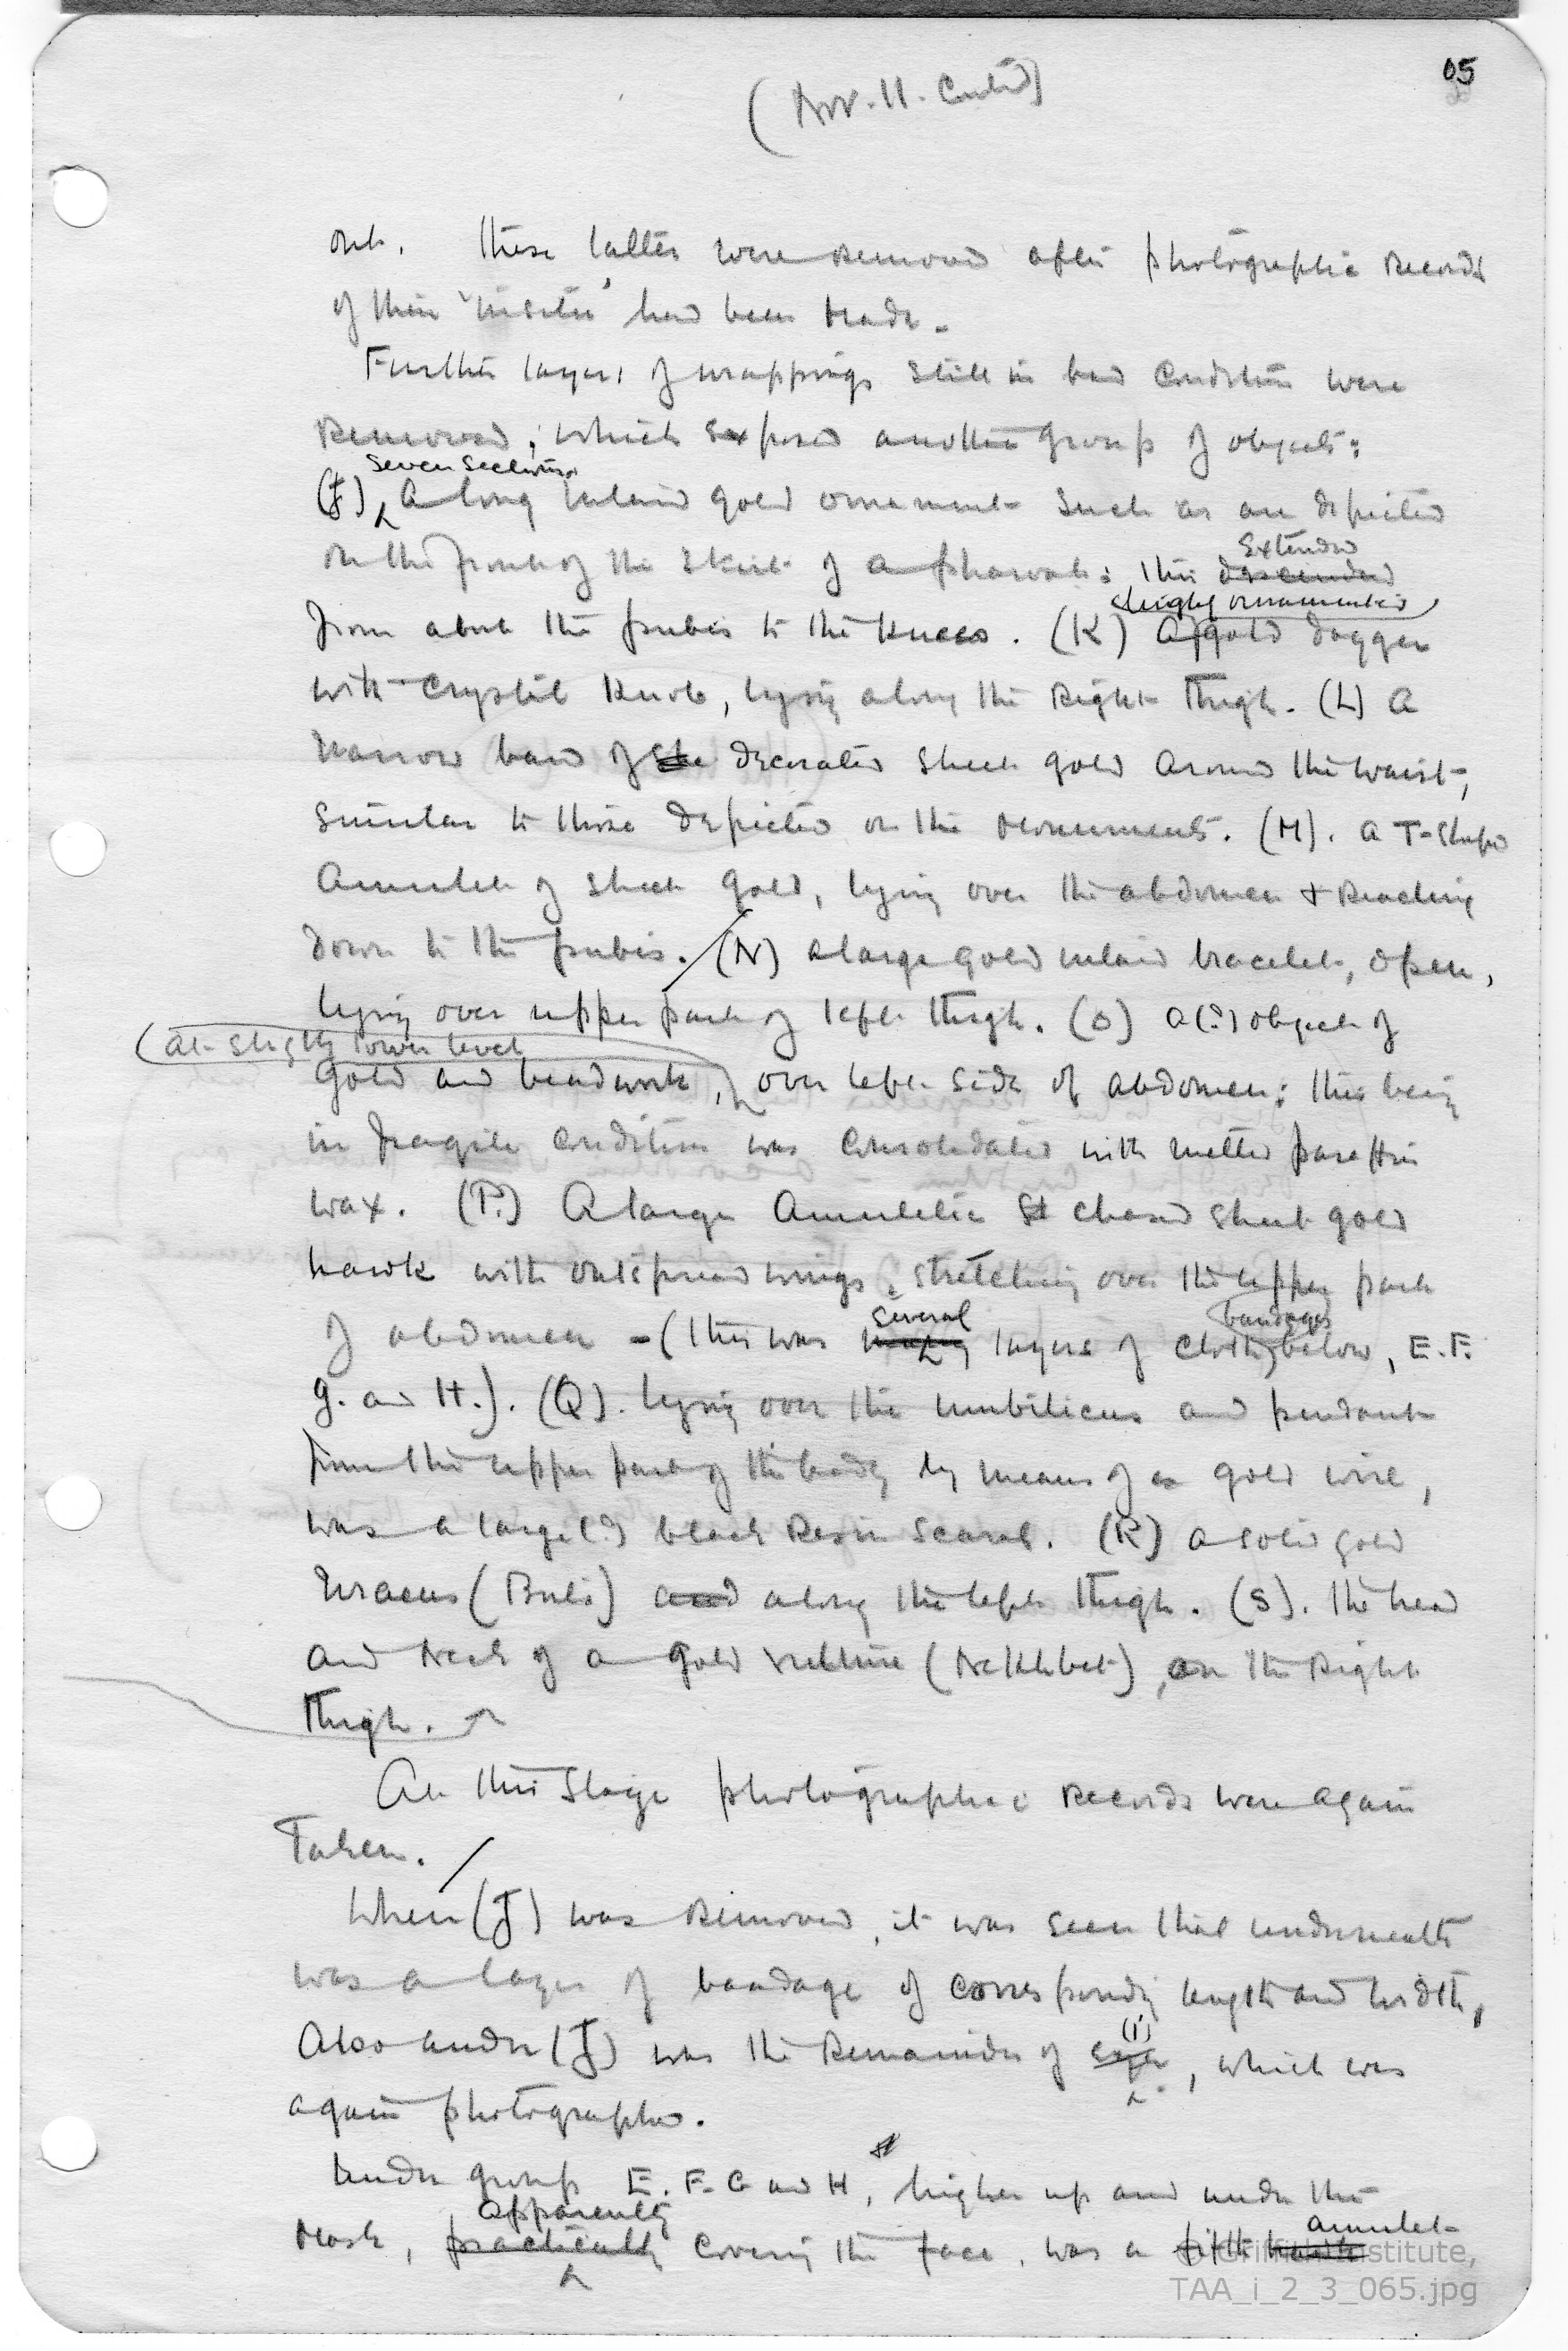 05
(Nov. 11. Contd)
out. These latter were removed after photographic records
of their 'insitu' had been made.
Further layers of wrappings still in bad condition were
removed; which exposed another group of objects:
seven sections
(J) A long inlaid gold ornament such as are depicted
on the front of the skirt of a pharaoh: this descended
extended
from about the pubes to the knees. (K) A gold dagger
highly ornamented
with crystal knob, lying along the right thigh. (L) A
narrow band of she decorated sheet gold around the waist,
similar to those depicted on the monuments. (M). A T-shape
amulet of sheet gold, lying over the abdomen & reaching
down to the pubis. (N) A large gold inlaid bracelet, open,
lying over upper part of left thigh. (O) A (?) object of
(at slightly lower level
gold and beadwork, over left side of abdomen: this being
in fragile condition was consolidated with melted paraffin
wax. (P.) A large amuletic chased sheet gold
hawk with outspread wings, stretching over the upper part
of abdomen - (this was many layers of cloth below, E. F.
several
bandages
G. and H.). (Q). lying over the umbilicus and pendant
from the upper part of the body by means of a gold wire,
was a large (?) black resin scarab. (R) A solid gold
Uraeus (Buto) and along the left thigh. (S). The head
and neck of a gold vulture (Nekhbet), on the right
thigh.
At this stage photographic records were again
taken.
When (J) was removed, it was seen that underneath
was a layer of bandage of corresponding length and width,
Also under (J) was the remainder of , which was
(I)
again photographed.
Under group E. F. G and H, higher up and under the
apparently
mask, practically covering the face, was a fifth
amulet
© Griffith Institute,
TAA_i_2_3_065.jpg